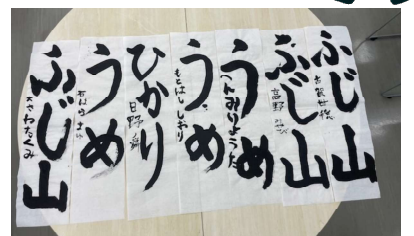 ふじ山
古賀
ふじ山
高野
うめ
へんみりょうた
うめ
もとはし しおり
ひかり
日野
うめ
ふじ山